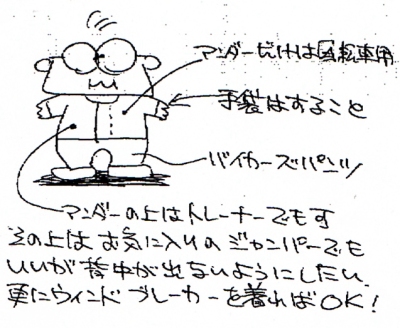 アンダーだけは自転車用
手袋はすること
バイカーズパンツ
アンダーの上はトレーナーでも可
その上はお気に入りのジャンパーでも
いいが背中が出ないようにしたい。
更にウィンドブレーカーを着ればOK!